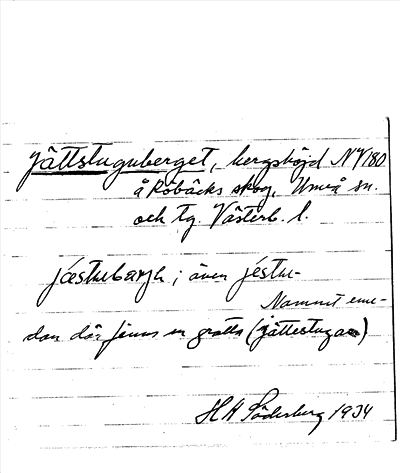 Jättstuguberget, bergshöjd NV180
å Röbäcks skog, Umeå sn.
och tg. Västerb. l.
jæstubarjh ; även jéstu-
Namnet eme-
dan där finns en grotta (jättestugan)
H A Söderberg 1934